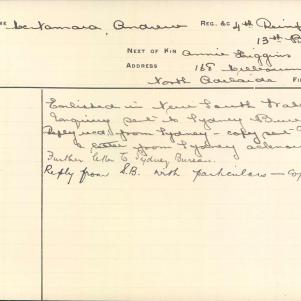 McNamara, Andrew REG. &C 4th Reinf
13th B
NEXT OF KIN Annie Higgins
ADDRESS 168 Melbourne
North Adelaide
Enlisted in New South Wal
Enquiry sent to Sydney Bure
Reply recd. from Sydney - copy sent
letter from Sydney acknow
Further letter to Sydney Bureau.
Reply from S.B. with particulars - cop